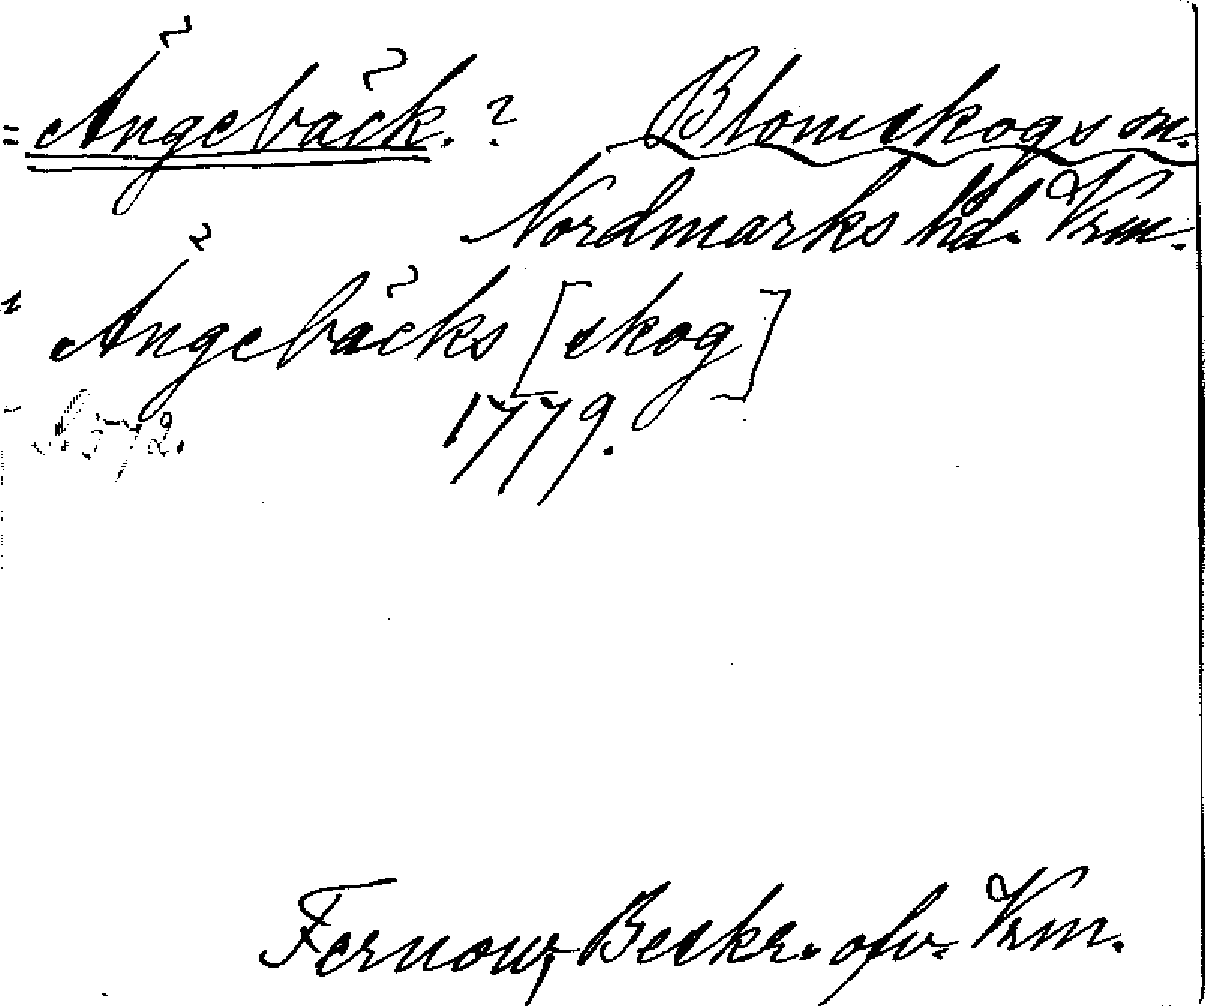 = Ängebäck. ? Blomskogs sn.
Nordmarks hd. Vrm.
Ängebäcks [skog]
572. 1779.
Fernow, Beskr. ofv. Vrm.